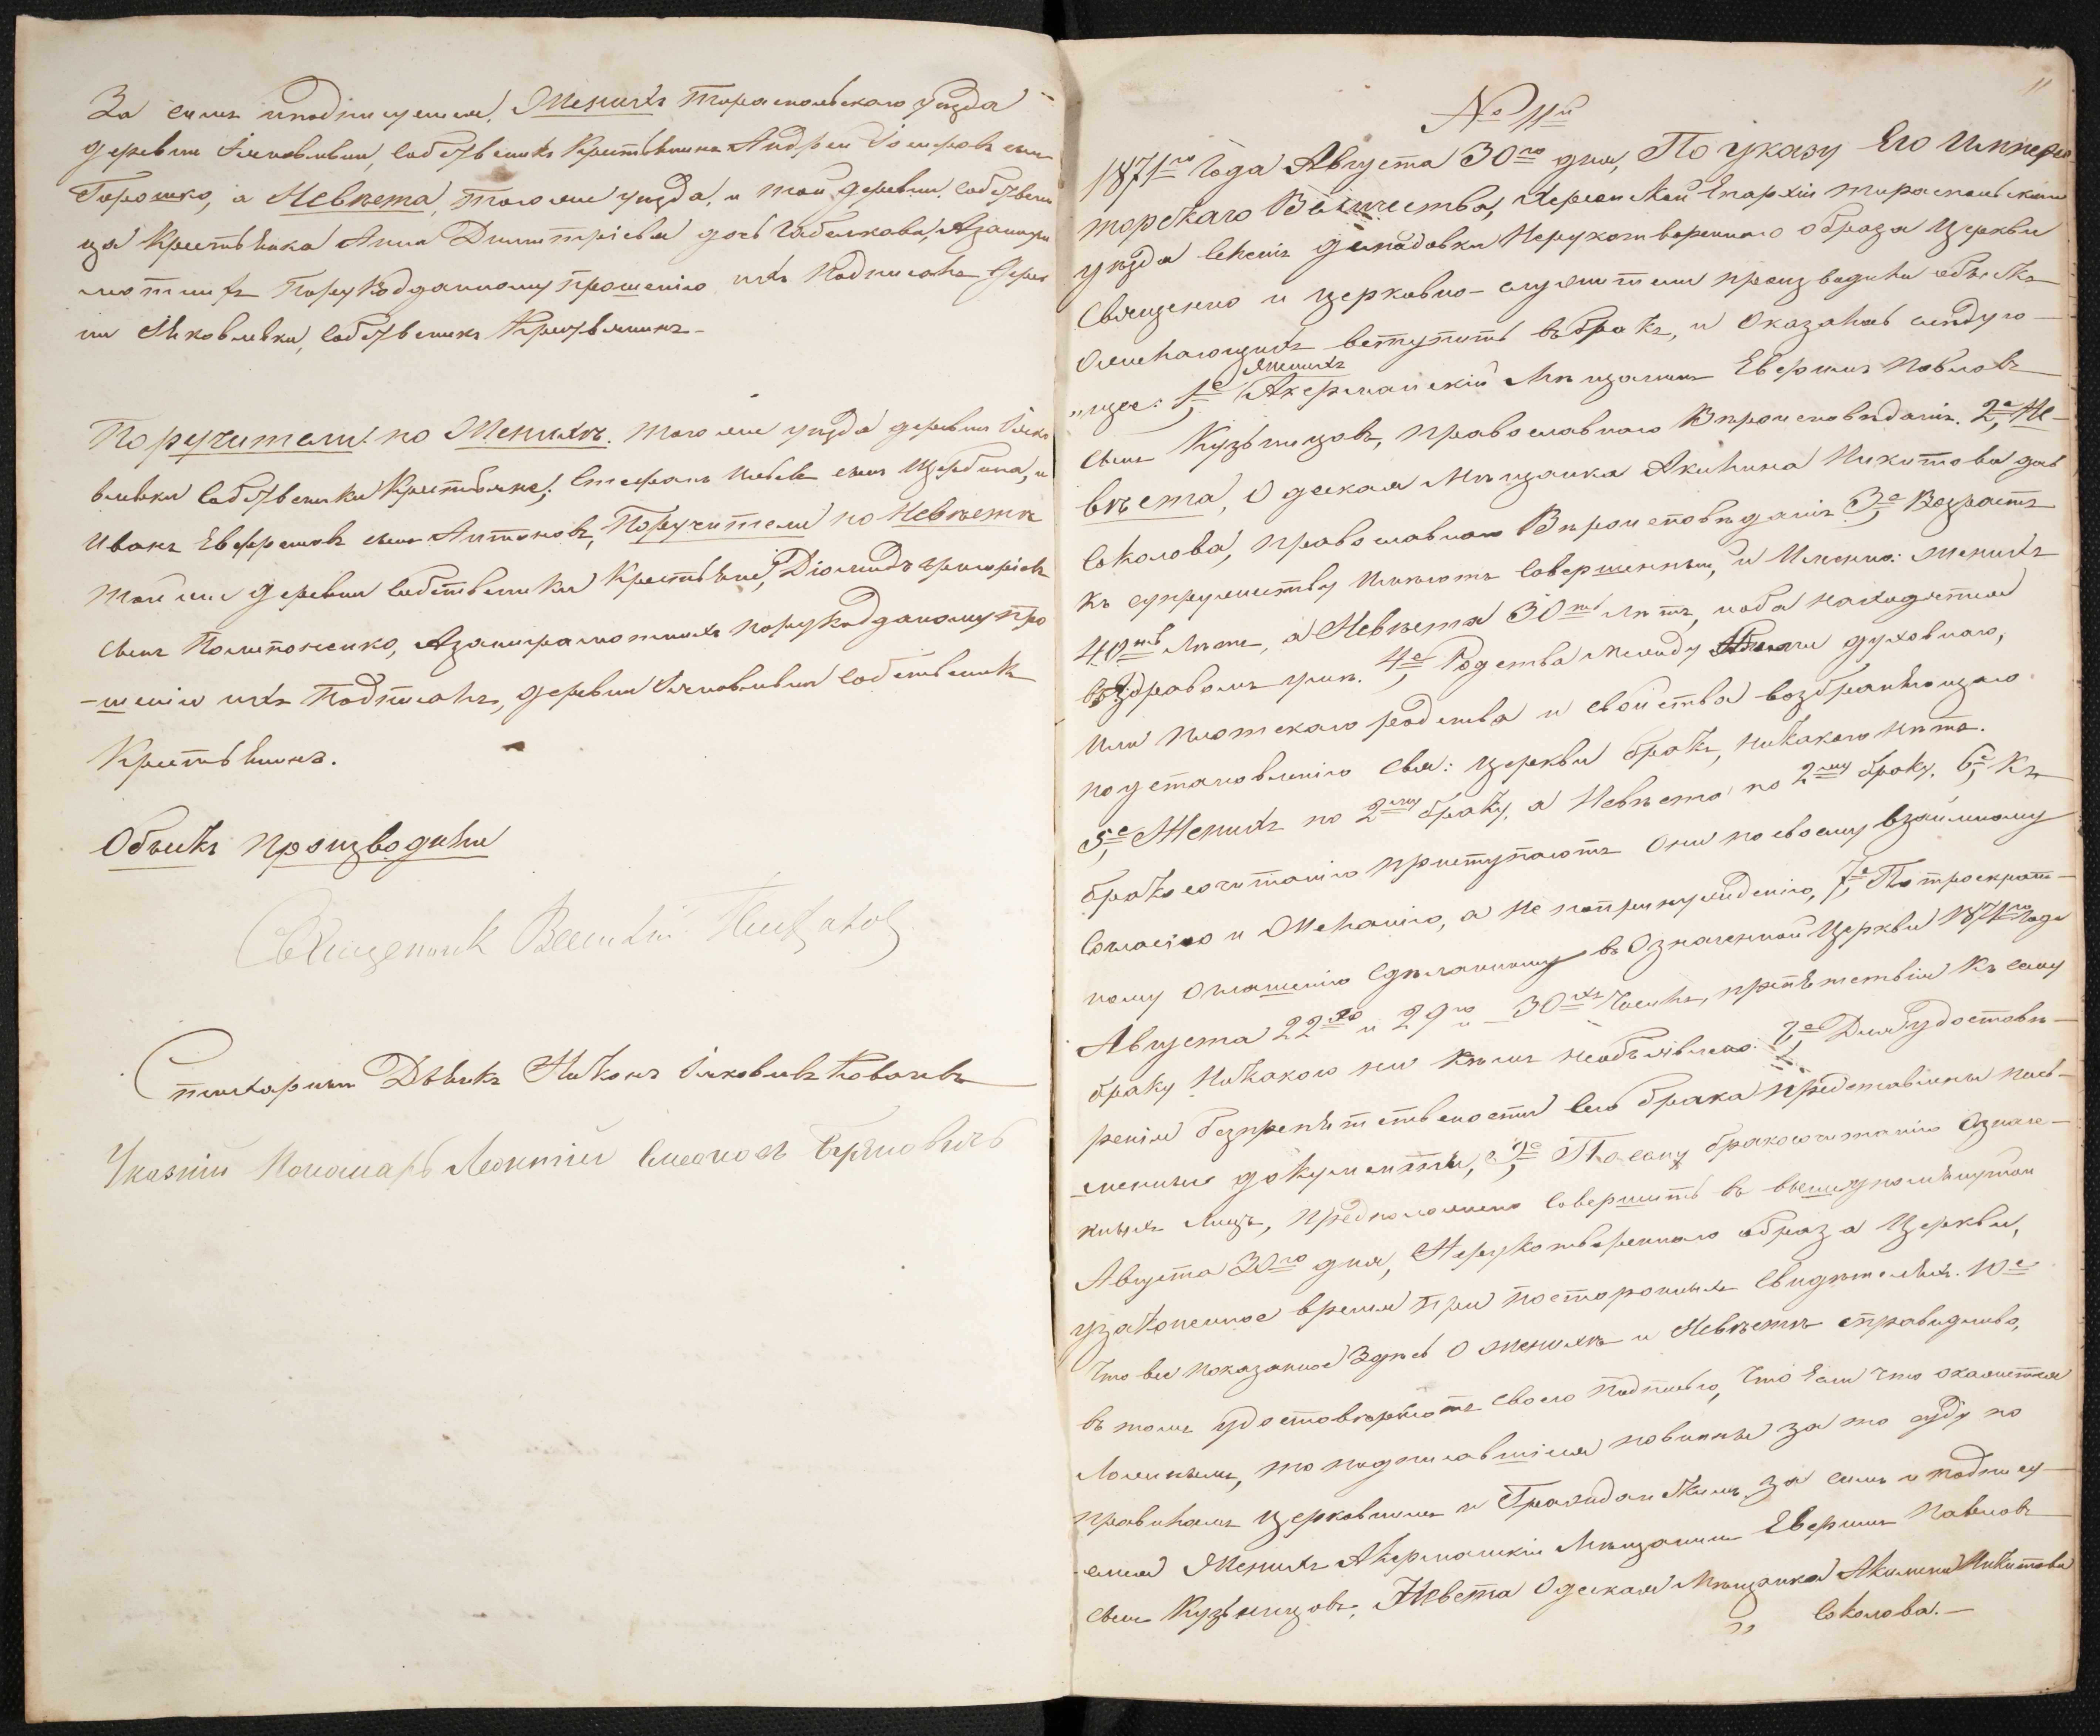 За симъ и подпишемся, Женихъ Тираспольскаго уѣзда
деревни Яковлевки, собственикъ Крестьянинъ Андрей сынъ
Горошко, а Невѣста, того же уѣзда, и той деревни, собствен
ца Крестьянка Анна Димитріева дочь Азанегра
мотныхъ По рукоданному прошенію ихъ Подписалъ дерев
ни Яковлевки, собственикъ Крестьянинъ-
Поручители: по Женихѣ. того же уѣзда деревни Яко
влевки собственики Крестьяне; Стефанъ сынъ Щербина, и
Иванъ Евфремовъ сынъ Антоновъ, Поручители по Невѣстѣ
той же деревни собственики Крестьяне, Діомидъ Григоріевъ
сынъ Азанеграмотныхъ порукоданому про
-шенію ихъ Подписалъ, деревни Яковлевки собственикъ
Крестьянинъ.
Обыскъ производили
Священникъ Василій
Стихарный Дьякъ Никонъ Яковлевъ Ковалевъ
Указный Пономарь Леонтій Симеоновъ
11
№ 11й
1871го Года Августа 30го дня, По указу Его Импера
торскаго Величества, Херсонской Епархіи тираспольскаго
уѣзда Нерукотвореннаго образа Церкви
Священно и церковно-служители производили обыскъ
о желающихъ вступить въ бракъ, и оказалось слѣдую-
женихъ
„щее: 1е, Акерманскій Мѣщанинъ Павловъ
сынъ Кузьницовъ, православнаго Вѣроисповѣданія. 2е, Не-
вѣста, Одеская Мѣщанка Акилина Никитова дочь
Соколова, православнаго Вѣроисповѣданія 3е, Возрастъ
къ супружеству Имѣютъ совершенный, и Именно: женихъ
40ть лѣтъ, а Невѣста 30ть лѣтъ, и оба находятся
въ здравомъ умѣ. 4е, Родства между духовнаго,
или плотскаго родства и свойства возбраняющаго
по установленію свя: Церкви бракъ, никакого нѣтъ.
5е, Женихъ по 2му браку, а Невѣста по 2му браку. 6е, Къ
бракосочитанію приступаютъ Они по своему взаимному
Согласію и желанію, а не по принужденію, 7е, По троекрат-
ному оглашенію сдѣланному въ Означенной Церкви 1871го года
Августа 22го и 29го и 30хъ Чиселъ, препятствія къ сему
браку Никакого ни кѣмъ необъявлено. 8е, Для удостовѣ-
ренія безпрепятствености сего брака представлены пись-
менные документы, 9е, По сему бракосочитанію Означе-
нныхъ Лицъ, предположено Совершить въ вышеупомянутой
Августа 30го дня, Нерукотвореннаго образа Церкви,
узаконенное время при постороннихъ Свидѣтеляхъ. 10е
Что все показанное Здѣсь о женихѣ и Невѣстѣ справидливо,
въ томъ удостовѣряютъ своею Подписью, что Если что окажится
Ложнымъ, то подписавшіися повинны за то суду по
правиламъ Церковнымъ и Гражданскимъ за симъ и подпису-
емся Женихъ Акерманскій Мѣщанинъ Павловъ
сынъ Кузьницовъ. Невѣста Одеская Мѣщанка Акилина Никитова
„ Соколова.-